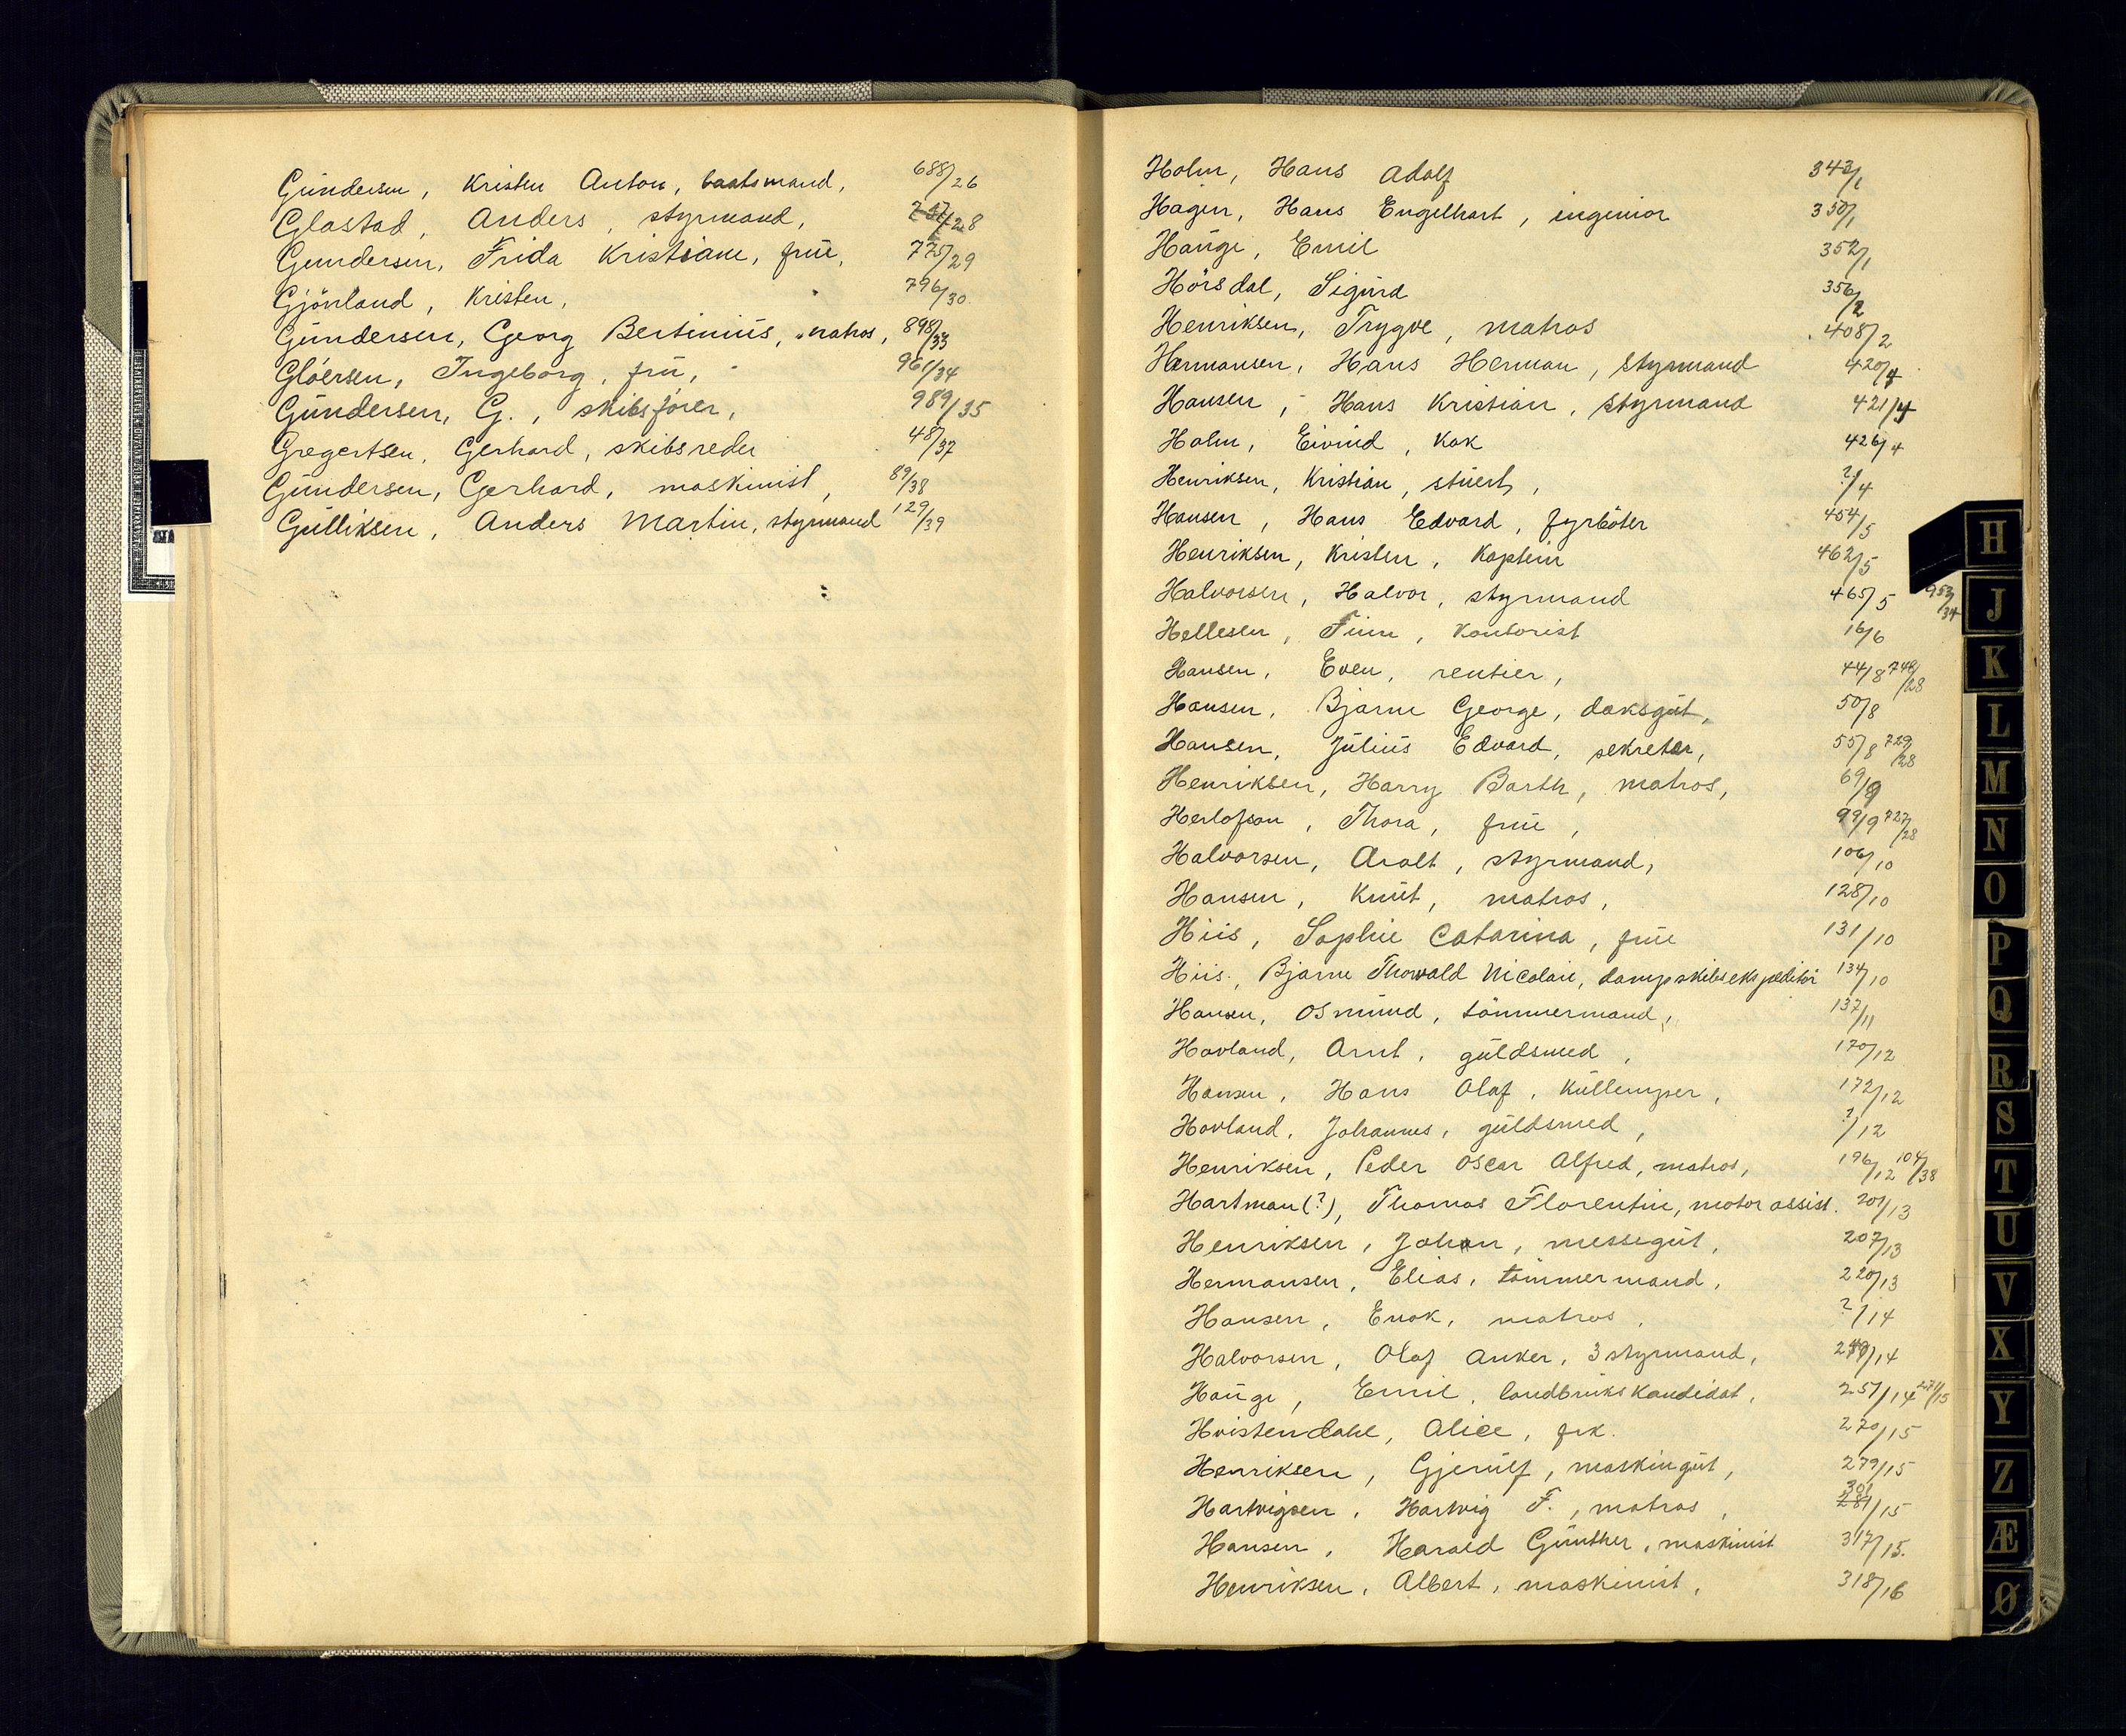 Gundersen, Kristen Anton, baatsmand, 688/26
Glastad, Anders, styrmand, 757/28
Gundersen, Frida Kristiane, frue, 775/29
Gjönland, Kristen, 796/30.
Gundersen, Georg Bertinius, matros, 898/33
Glöersen, Ingeborg, fru, 961/34
Gundersen, G., skibsfører, 989/35
Gregertsen, Gerhard, skibsreder 48/37
Gundersen, Gerhard, maskinist, 89/38
Gulliksen, Anders Martin, styrmand 129/39
Holm, Hans Adolf 343/1
Hagen, Hans Engelhart, ingeniør 350/1
Hauge, Emil 352/1
Hörsdal, Sigurd 356/2
Henriksen, Trygve, matros 408/2
Hermansen, Hans Herman, styrmand 420/4
Hansen, Hans Kristian, styrmand 421/4
Holm, Eivind, kok 426/4
Henriksen, Kristian, stuert, ?/4
Hansen, Hans Edvard, fyrböter 454/5
Henriksen, Kristen, Kaptein 462/5
Halvorsen, Halvor, styrmand 465/5 953/34
Hellesen, Finn, kontorist 16/6
Hansen, Even, rentier, 44/8 748/28
Hansen, Bjarne George, daksgut, 50/8
Hansen, Julius Edvard, sekretær, 55/8 729/28
Henriksen, Harry Barth, matros, 69/9
Herlofson, Thora, frue, 99/9 727/28
Halvorsen, Aralt, styrmand, 106/10
Hansen, Knut, matros, 128/10
Hiis, Sophie Catarina, frue 131/10
Hiis, Bjarne Thorvald Nicolaie, dampskibsekspeditör 134/10
Hansen, Osmund, tömmermand, 137/11
Hovland, Arnt, guldsmed, 170/12
Hansen, Hans Olaf, kullemper, 172/12
Hovland, Johannes, guldsmed, ?/12
Henriksen, Peder Oscar Alfred, matros, 196/12 104/38
Hartman(?), Thomas Florentin, motorassist. 201/13
Henriksen, Johan, messegut, 207/13
Hermansen, Elias, tömmermand, 220/13
Hansen, Enok, matros, ?/14
Halvorsen, Olaf Anker, 3 styrmand, 249/14
Hauge, Emil, landbrukskandidat, 257/14 271/15
Hvistendahl, Alice, frk. 270/15
Henriksen, Gjerulf, maskingut, 279/15
Hartvigsen, Hartvig F., matros, 281/15 301
Hansen, Harald Günther, maskinist 317/15.
Henriksen, Albert, maskinist, 318/16
H
J
K
L
M
N
O
P
Q
R
S
T
U
V
X
Y
Z
Æ
Ø